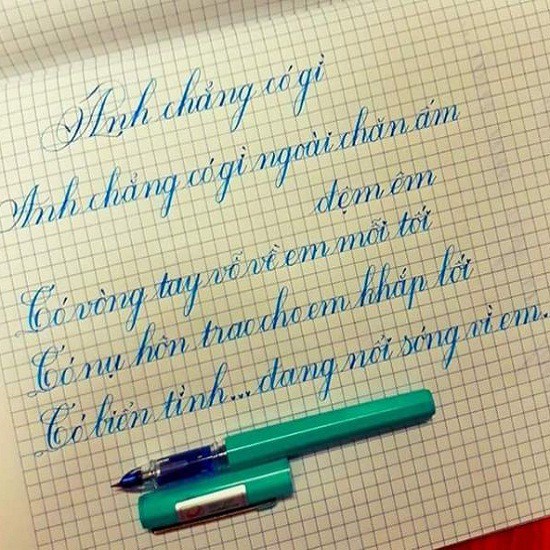 Anh chẳng có gì
Anh chẳng có gì ngoài chăn ấm
đệm êm
Có vòng tay vỗ về em mỗi tối
Có nụ hôn trao cho em khắp lối
Có biển tình... đang nổi sóng vì em.